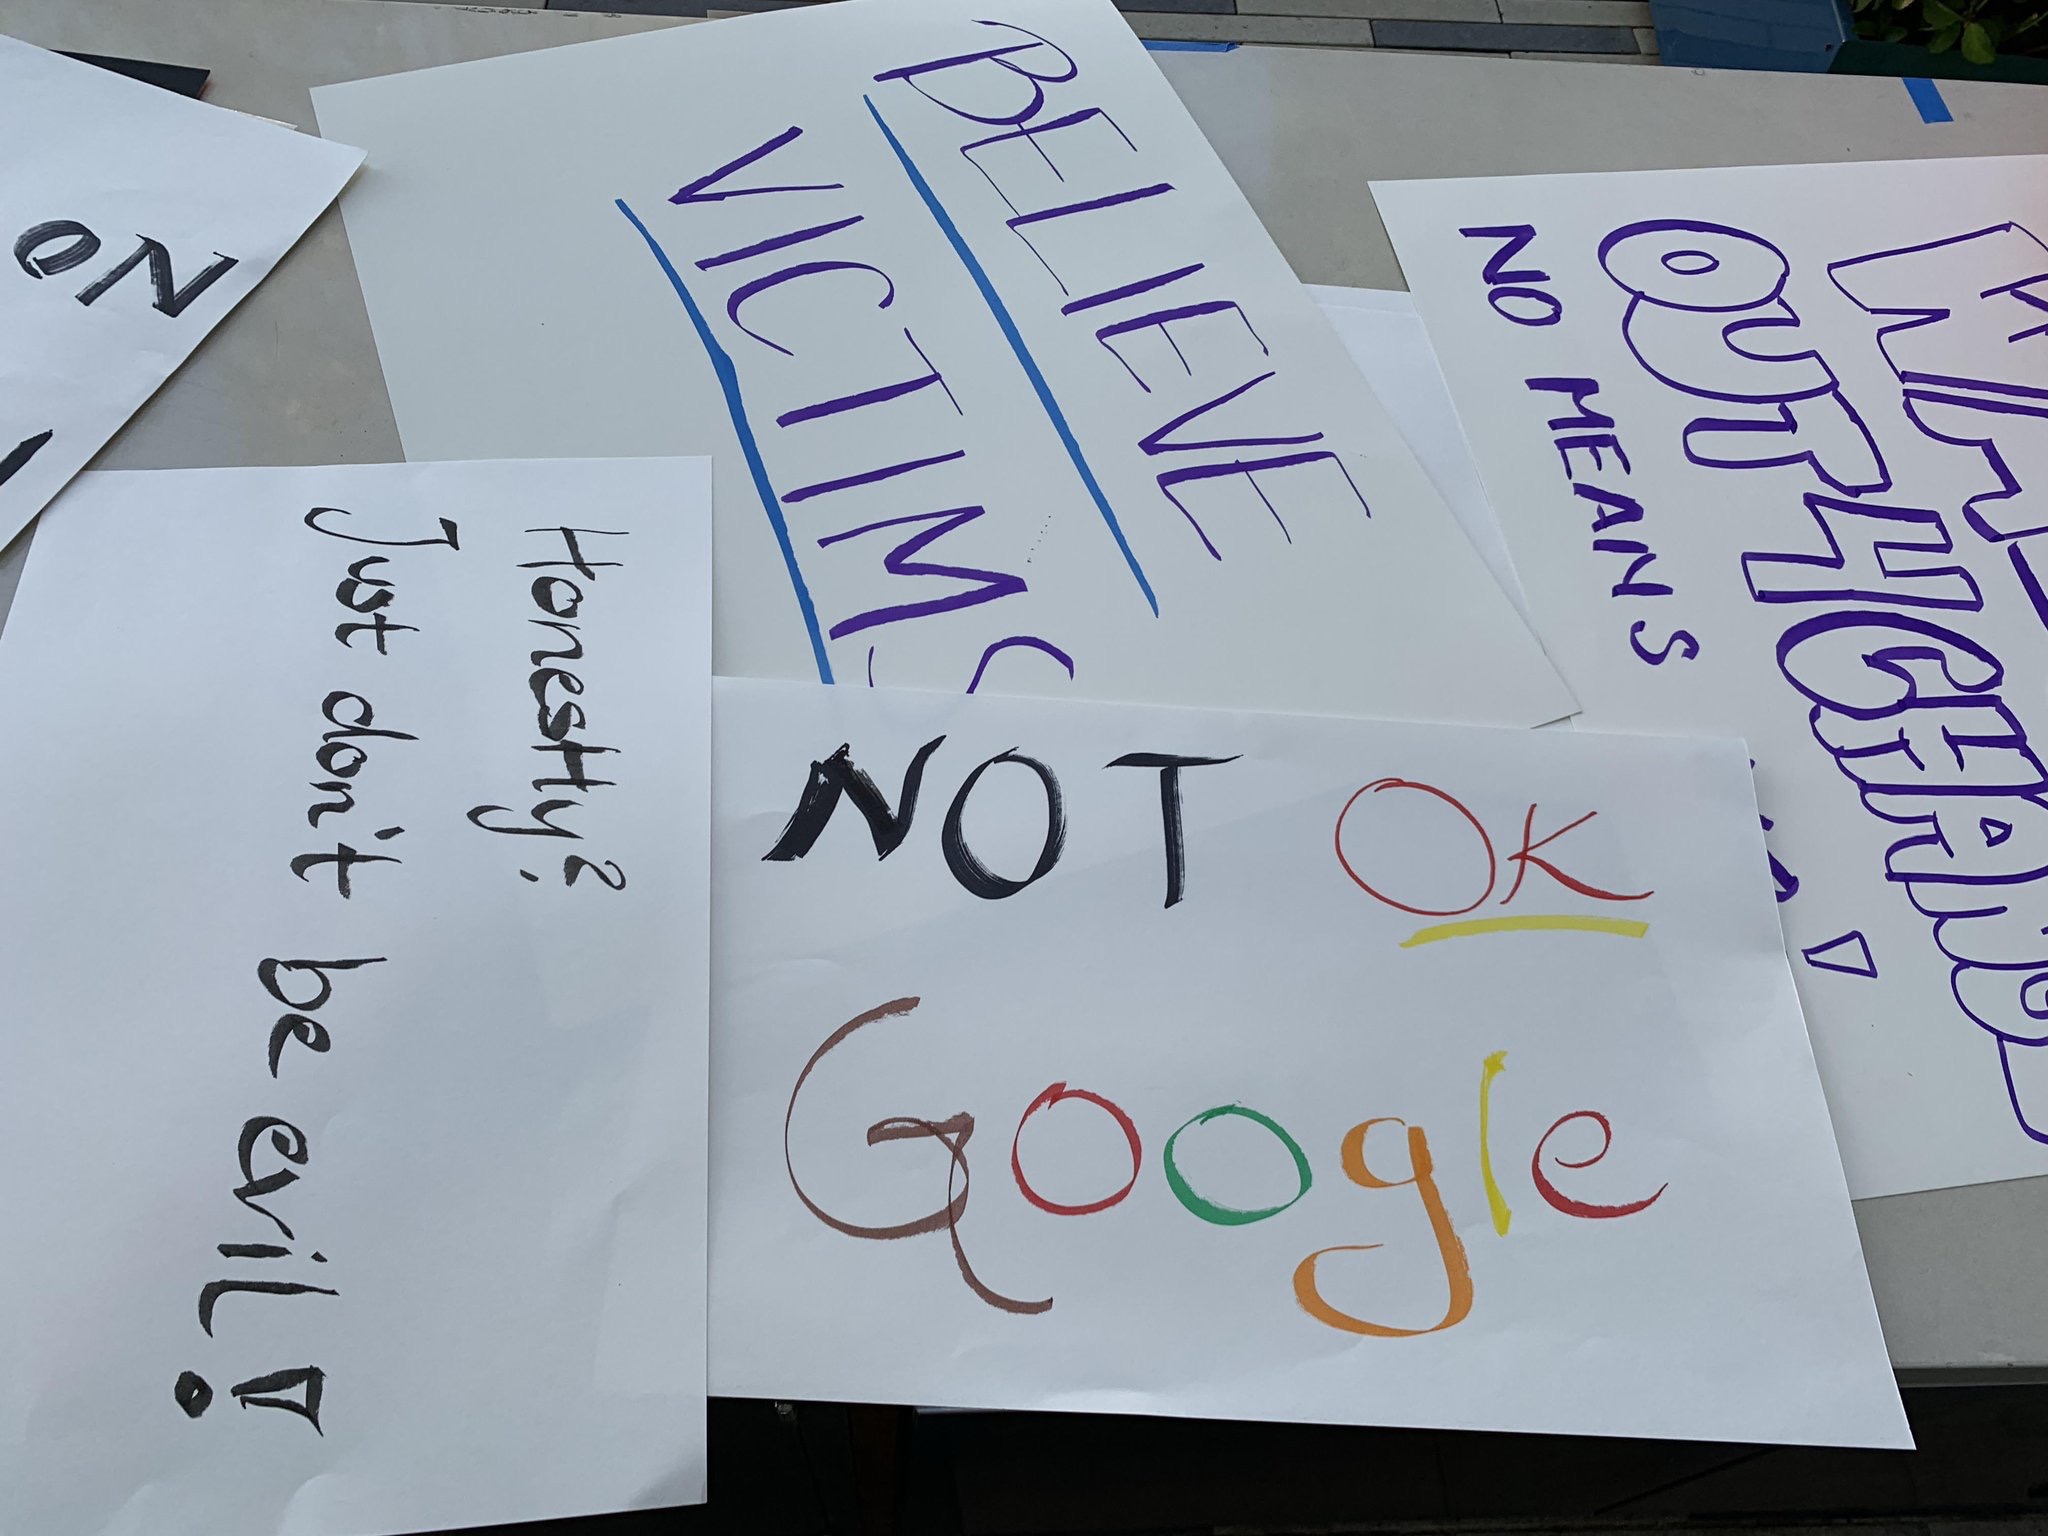 NO
BELIEVE
VICTIMS
NO MEANS
Honestly?
Just don't be evil!
NOT OK
Google